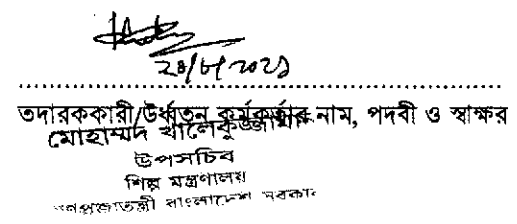 ২৪/৮/২০২১
তদারককারী/উর্ধ্বতন কর্মকর্তার নাম, পদবী ও স্বাক্ষর
মোহাম্মদ খালেকুজ্জামান
উপসচিব
শিল্প মন্ত্রণালয়
গণপ্রজাতন্ত্রী বাংলাদেশ সরকার